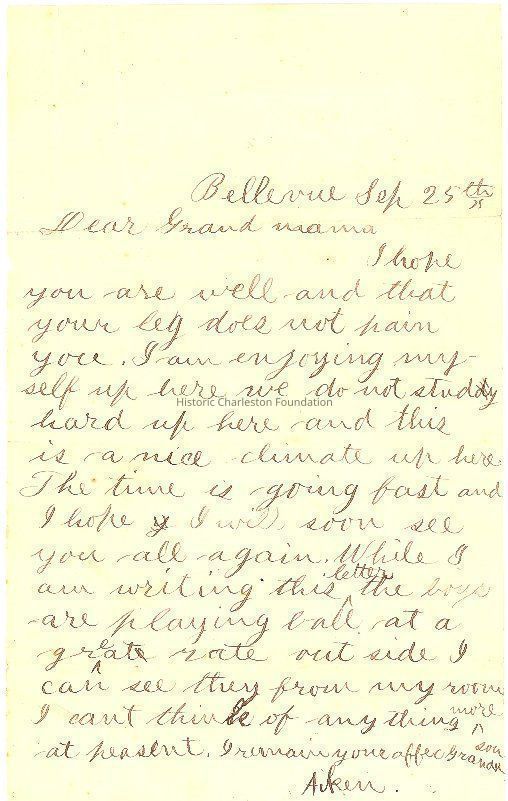 Bellevue Sep 25th
Dear Grand mama
I hope
you are well and that
your leg does not pain
you. I am enjoying my-
self up here we do not study
Historic Charleston Foundation
hard up here and this
is a nice climate up here
The time is going fast and
I hope y I will soon see
you all again. While I
am writing this letter the boys
are playing ball at a
great rate out side I
can see they from my room
I cant think of any thing more
at peasent. I remain your affec Grandson
Aiken.